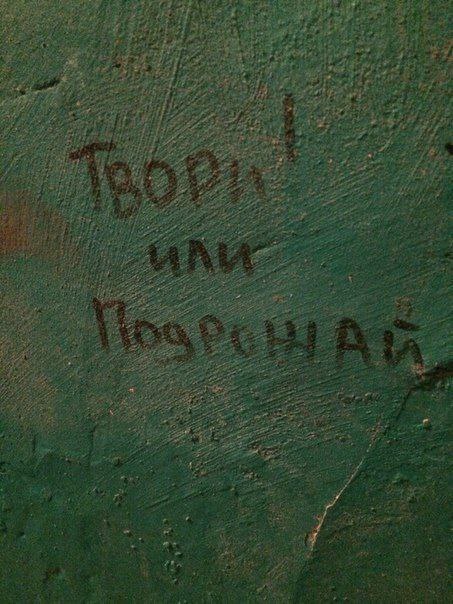 Твори!
или
Подрожай